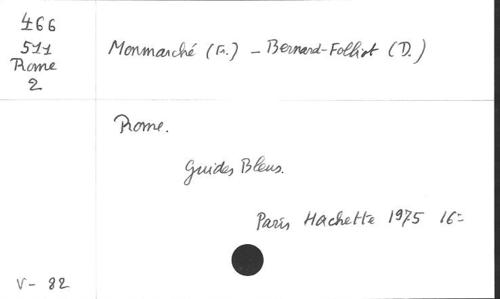 466
511
Rome
2
Monmarché (Fr.) - Bernard-Folliot (D.)
Rome.
Guides Bleus.
Paris Hachette 1975 16=
V- 82